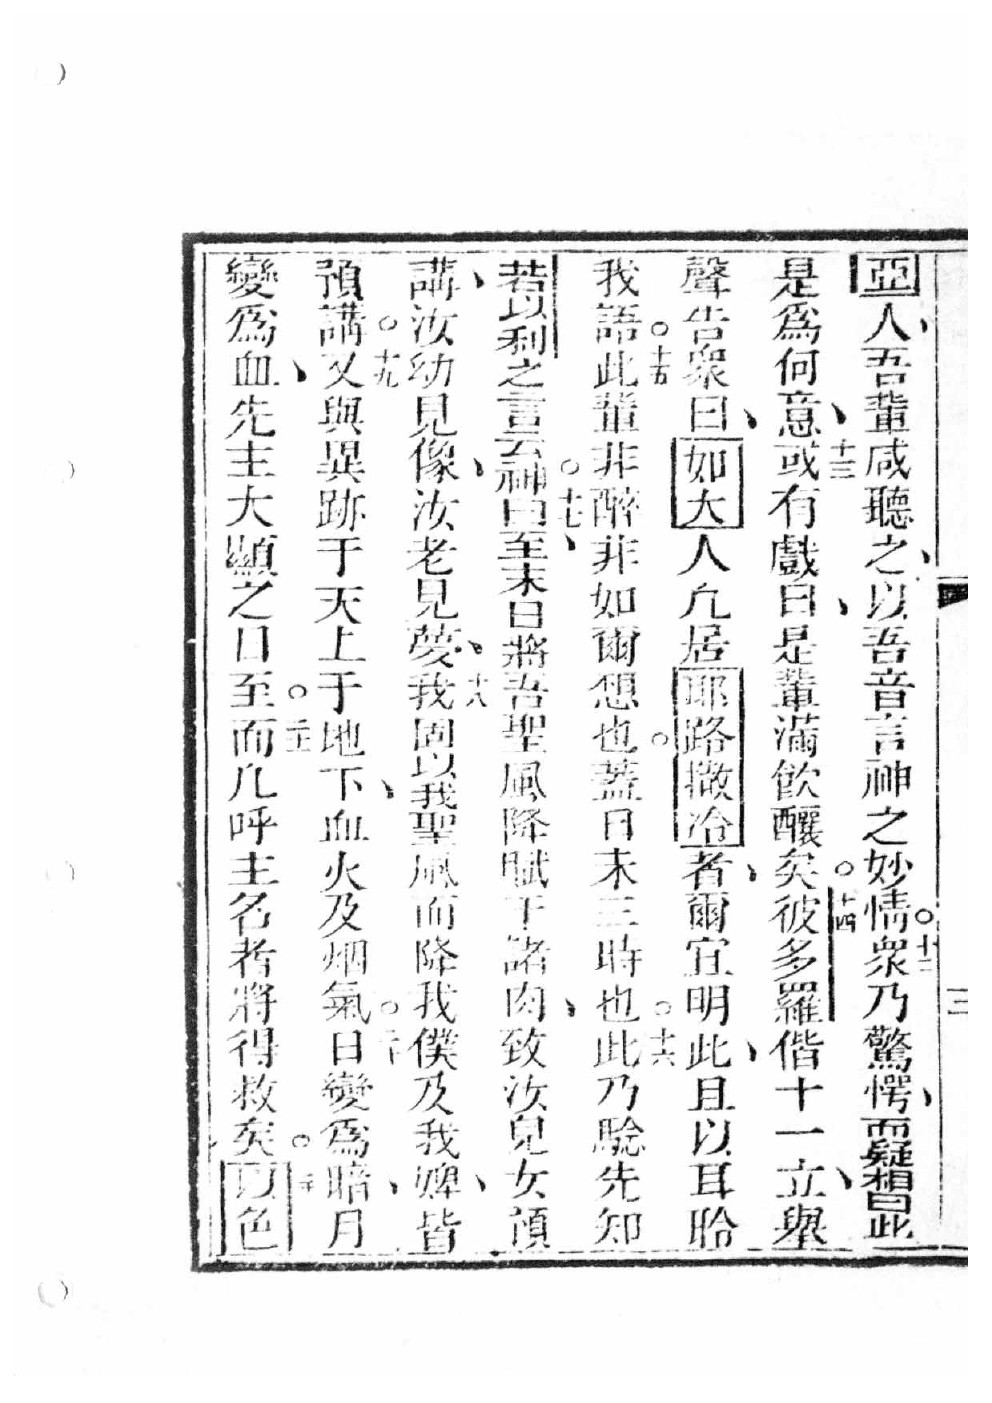 亞人吾輩咸聽之以吾音言神之妙情○十二眾乃驚愕而疑想曰此
是為何意十三或有戲曰是輩滿飲釀矣○十四彼多羅偕十一立舉
聲告眾曰如大人凡居耶路撒冷者爾宜明此且以耳聆
我語○十五此輩非醉非如爾想也○蓋日未三時也○十六此乃騐先知
若以利之言云○十七神曰至末日將吾聖風降賦于諸肉致汝兒女預
講汝幼見像汝老見夢十八我固以我聖風而降我僕及我婢皆
預講○十九又與異跡于天上于地下血火及烟氣○二十日變為暗月
變為血先主大顯之日至○二十一而凡呼主名者將得救矣○二十二以色
三